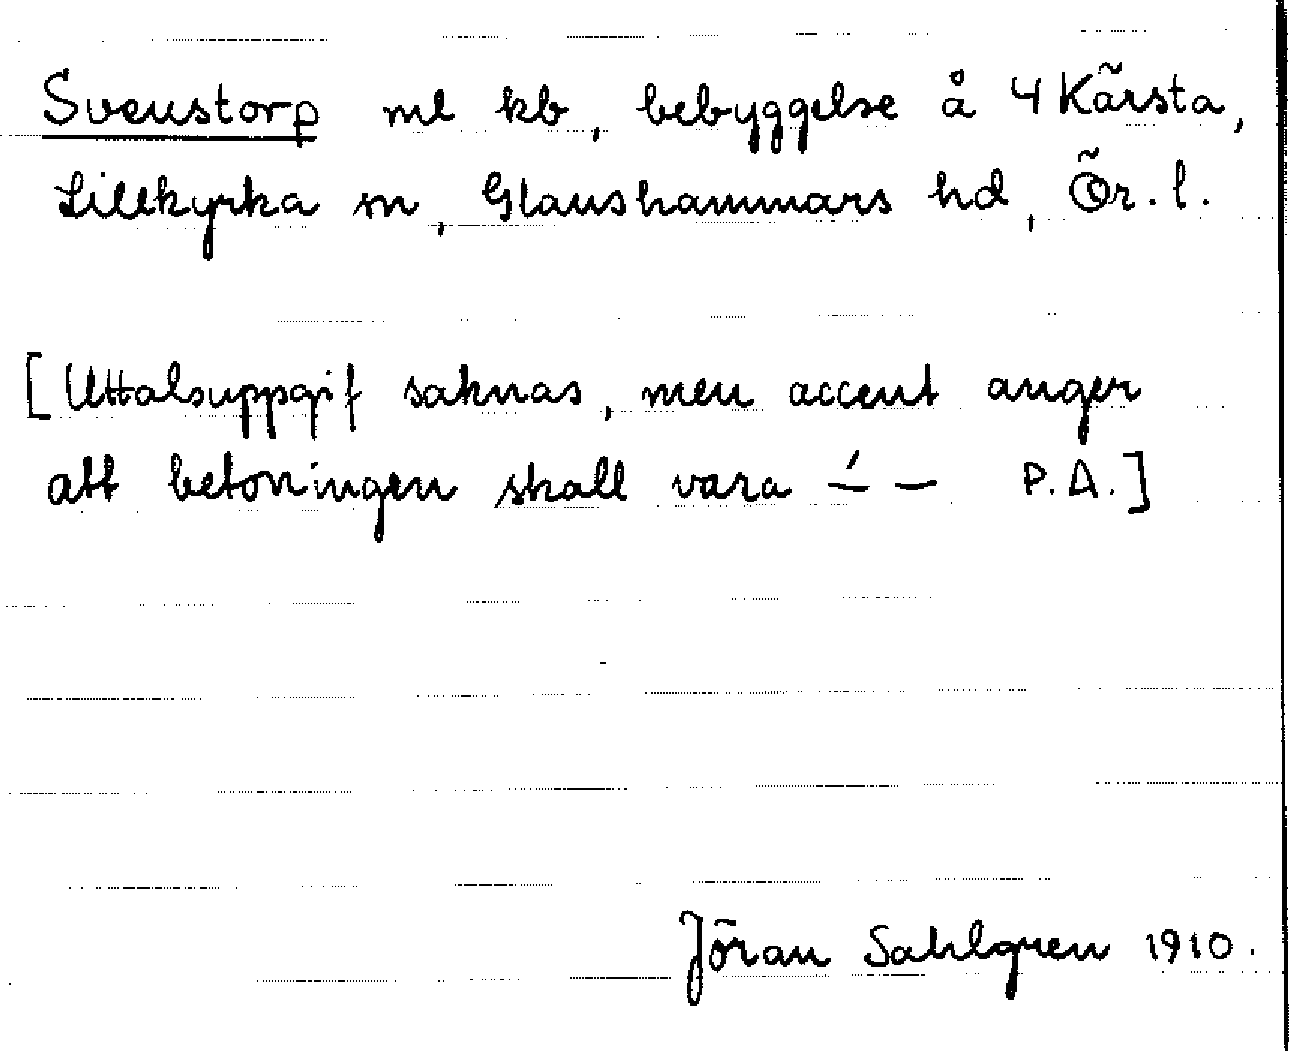 Svenstorp ml kb, bebyggelse å 4 Kärsta,
Lillkyrka sn, Glanshammars hd, Ör. l.
[Uttalsuppgif saknas, men accent anger
att betoningen skall vara –́ – P.A.]
Jöran Sahlgren 1910.